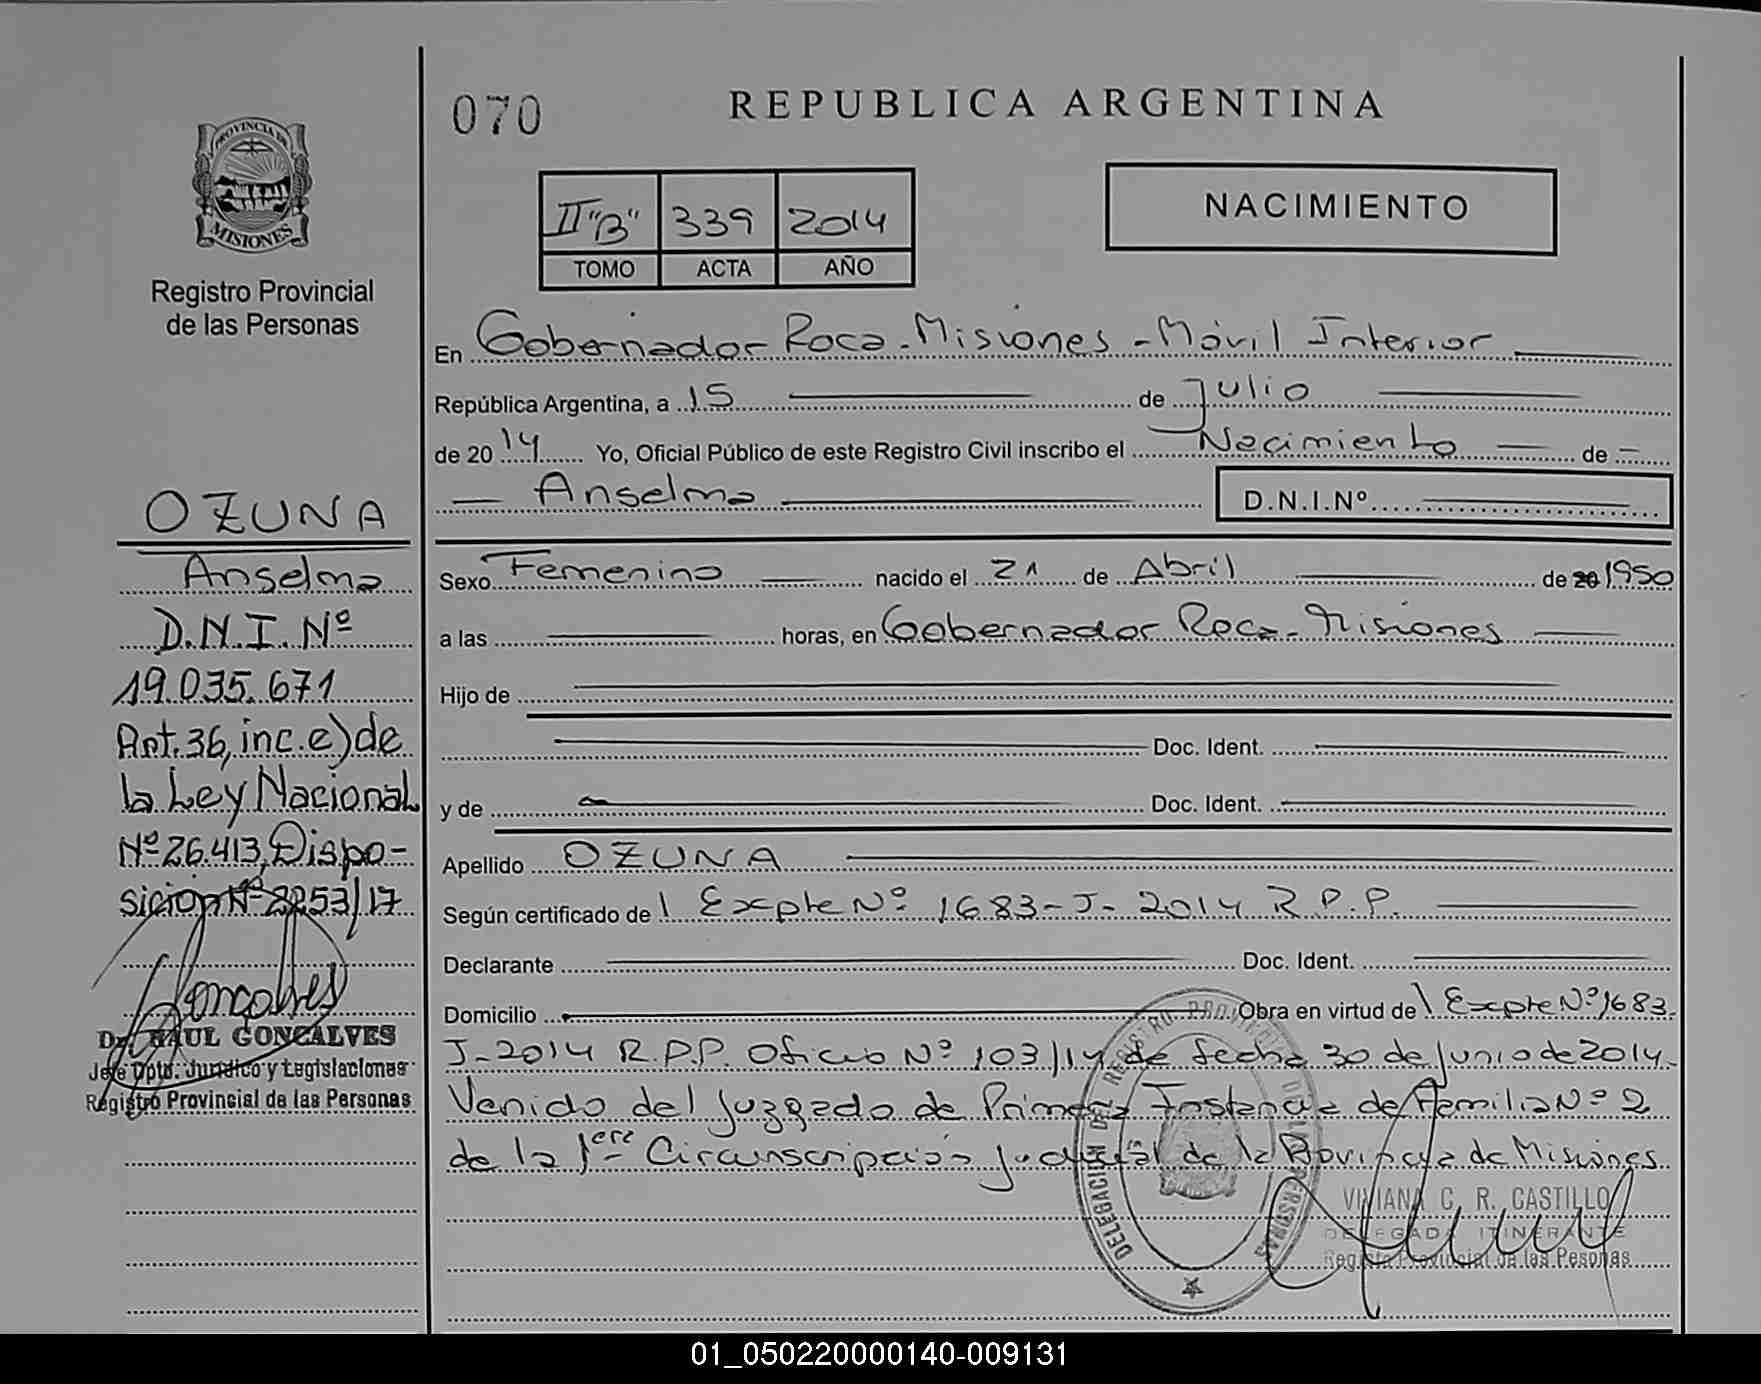 070
REPUBLICA ARGENTINA
PROVINCIA DE
MISIONES
Registro Provincial
de las Personas
II "B" 339 2014
TOMO ACTA AÑO
NACIMIENTO
En Gobernador Roca - Misiones - Móvil Interior
República Argentina, a 15 de Julio
de 2014 Yo, Oficial Público de este Registro Civil inscribo el Nacimiento de
Anselma D.N.I.Nº
Sexo Femenino nacido el 21 de Abril de 20 1950
a las horas, en Gobernador Roca - Misiones
Hijo de
Doc. Ident.
y de Doc. Ident.
Apellido OZUNA
Según certificado de Expte Nº 1683-J-2014 R.P.P.
Declarante Doc. Ident.
Domicilio Obra en virtud de Expte Nº 1683-
J-2014 R.P.P. Oficio Nº 103/14 de fecha 30 de Junio de 2014-
Venido del Juzgado de Primera Instancia de Familia Nº 2
de la 1era Circunscripción Judicial de la Provincia de Misiones.
VIVIANA C. R. CASTILLO
DELEGADA ITINERANTE
Registro Provincial de las Pesonas
OZUNA
Anselma
D.N.I. Nº
19.035.671
Art. 36, inc. e) de
la Ley Nacional
Nº 26.413, Dispo-
sición Nº 2253/17
Goncalves
Dr. RAUL GONCALVES
Jefe Dpto. Jurídico y Legislaciones
Registro Provincial de las Personas
01_050220000140-009131